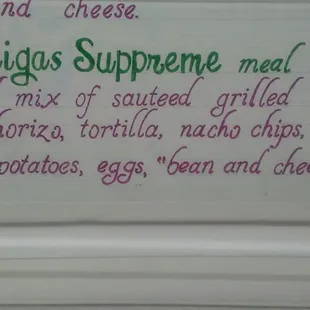 nd cheese.
igas Suppreme meal
mix of sauteed grilled
horizo, tortilla, nacho chips,
potatoes, eggs, "bean and chee